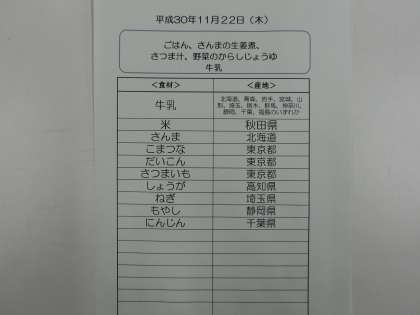 平成30年11月22日（木）
ごはん、さんまの生姜煮、
さつま汁、野菜のからしじょうゆ
牛乳
＜食材＞ ＜産地＞
牛乳 北海道、青森、岩手、宮城、山
形、埼玉、栃木、群馬、神奈川、
静岡、千葉、福島のいずれか
米 秋田県
さんま 北海道
こまつな 東京都
だいこん 東京都
さつまいも 東京都
しょうが 高知県
ねぎ 埼玉県
もやし 静岡県
にんじん 千葉県